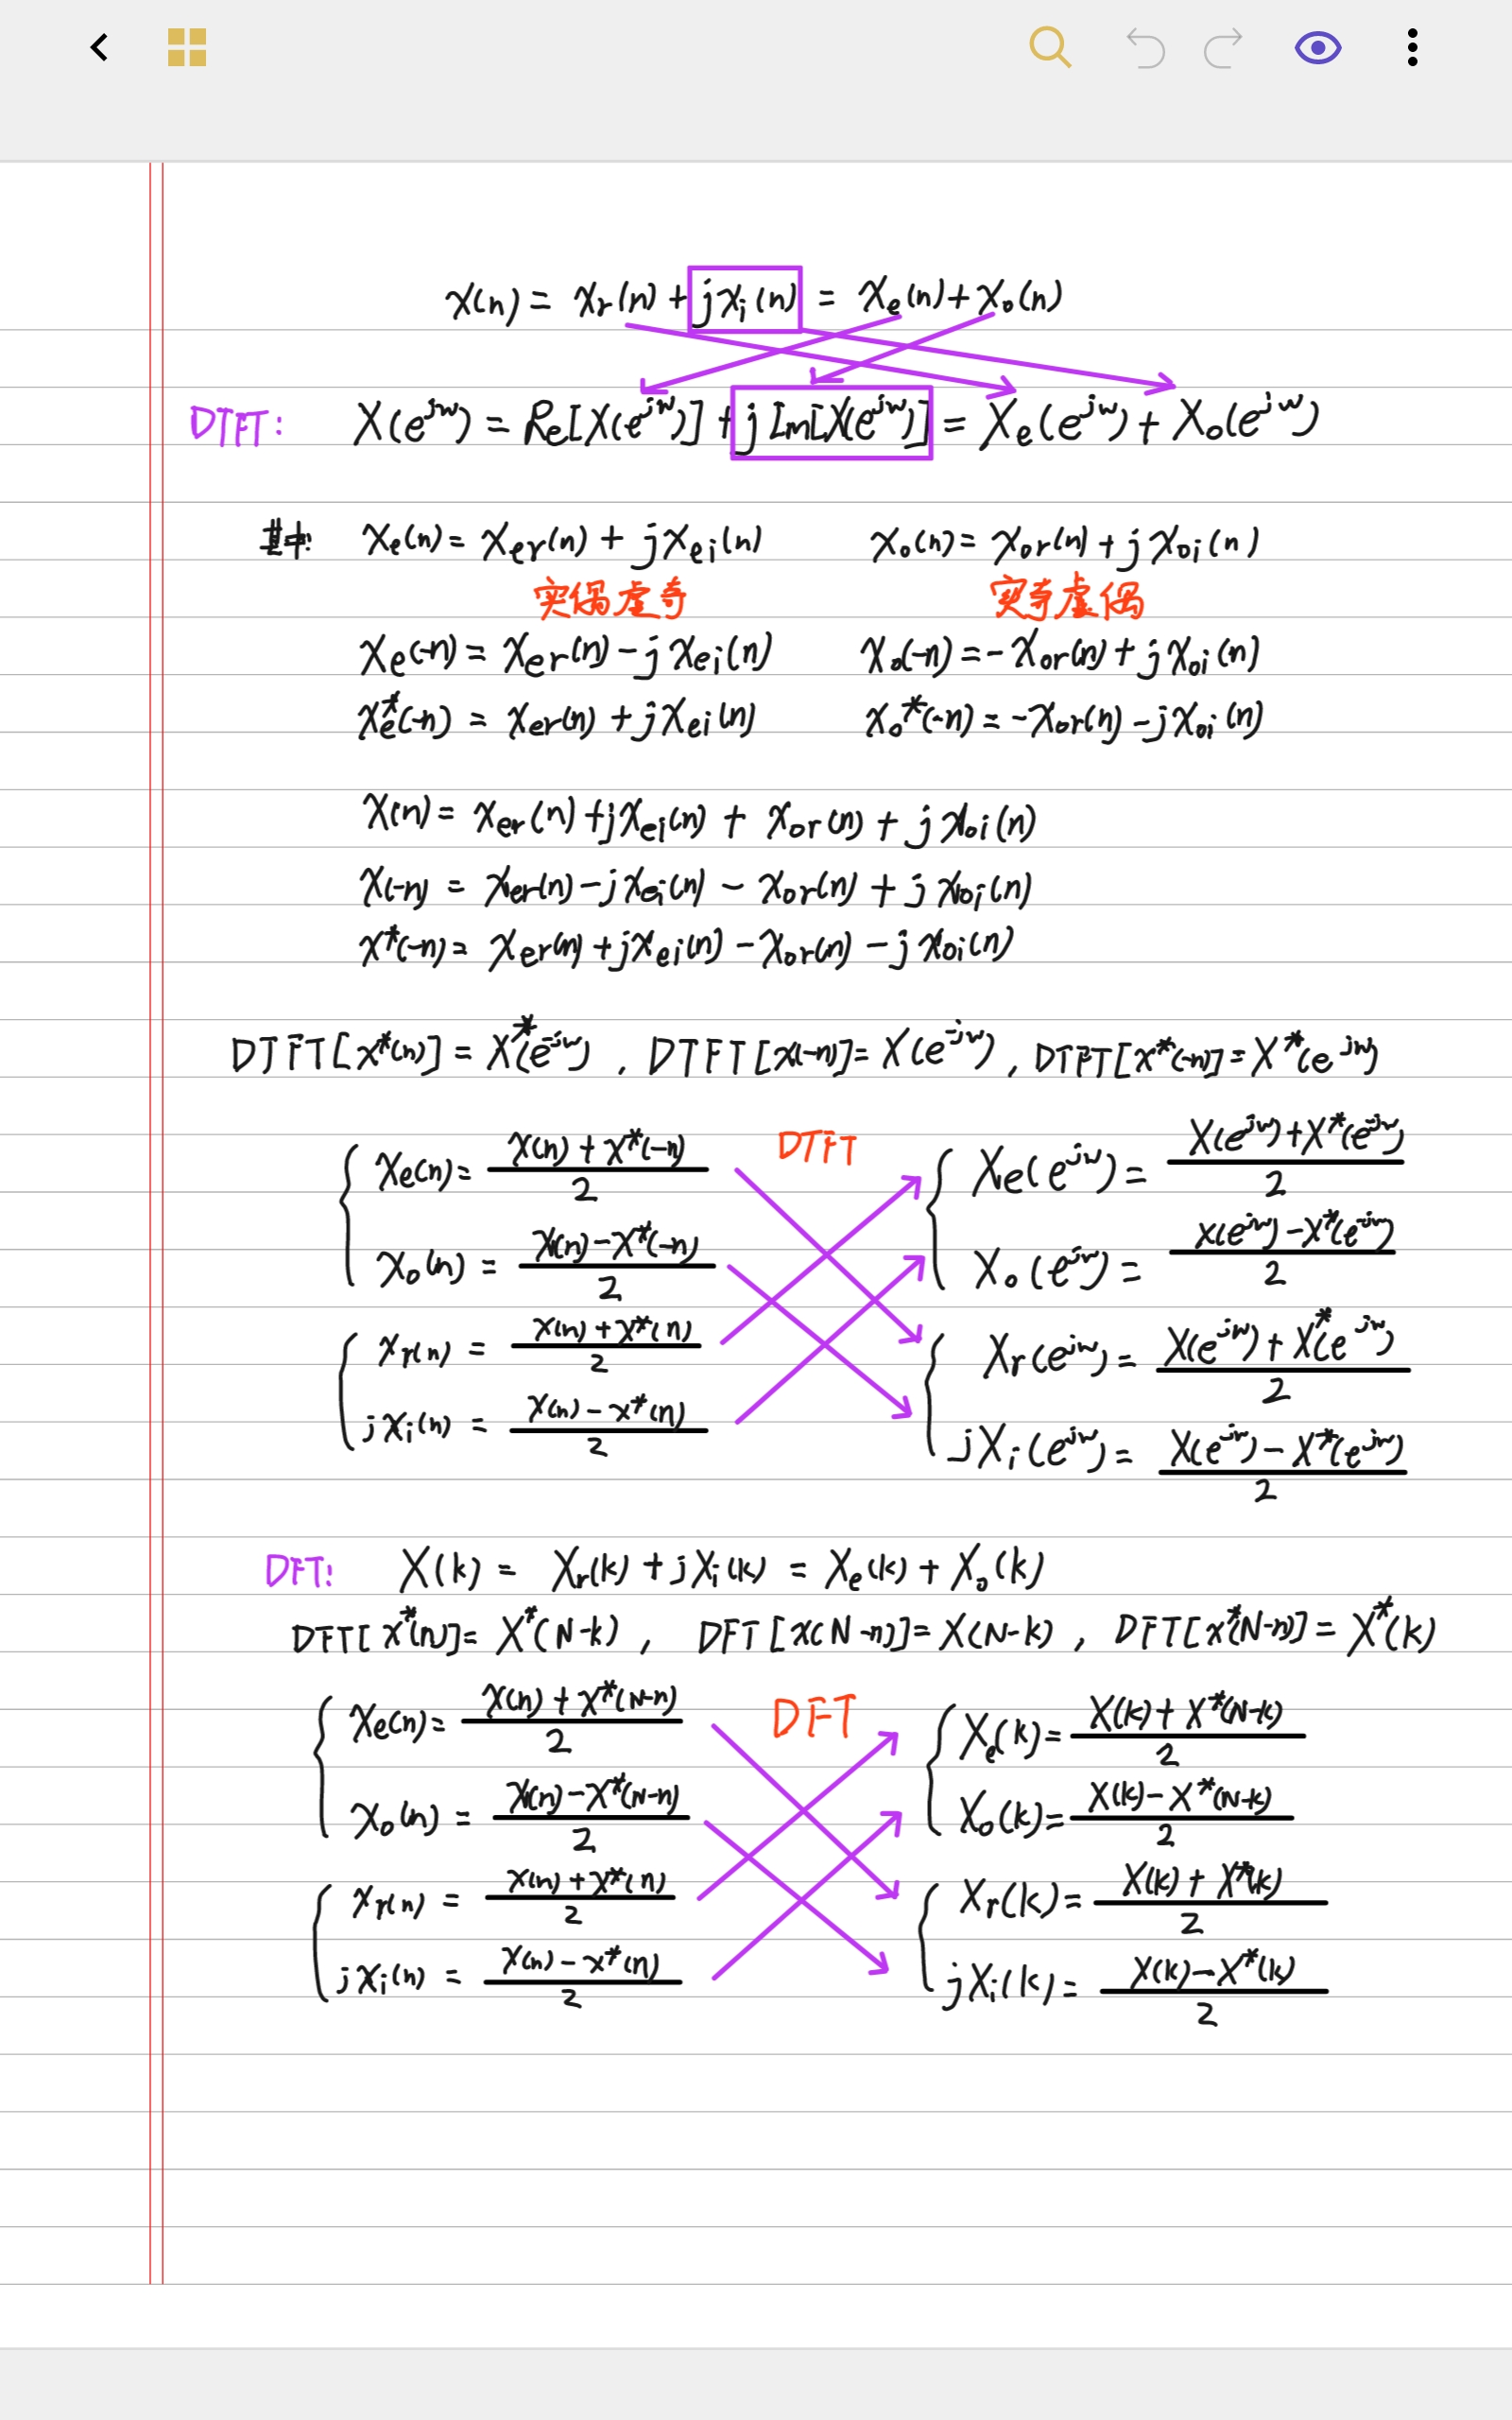 x(n) = xᵣ(n) + jxᵢ(n) = xₑ(n) + xₒ(n)
DTFT: X(e^{jw}) = Re[X(e^{jw})] + jIm[X(e^{jw})] = Xₑ(e^{jw}) + Xₒ(e^{jw})
其中: xₑ(n) = x_{er}(n) + jx_{ei}(n)  xₒ(n) = x_{or}(n) + jx_{oi}(n)
实偶虚奇  实奇虚偶
xₑ(-n) = x_{er}(n) - jx_{ei}(n)  xₒ(-n) = -x_{or}(n) + jx_{oi}(n)
xₑ*(-n) = x_{er}(n) + jx_{ei}(n)  xₒ*(-n) = -x_{or}(n) - jx_{oi}(n)
x(n) = x_{er}(n) + jx_{ei}(n) + x_{or}(n) + jx_{oi}(n)
x(-n) = x_{er}(n) - jx_{ei}(n) - x_{or}(n) + jx_{oi}(n)
x*(-n) = x_{er}(n) + jx_{ei}(n) - x_{or}(n) - jx_{oi}(n)
DTFT[x*(n)] = X*(e^{-jw}) , DTFT[x(-n)] = X(e^{-jw}) , DTFT[x*(-n)] = X*(e^{jw})
xₑ(n) = (x(n) + x*(-n))/2  DTFT  Xₑ(e^{jw}) = (X(e^{jw}) + X*(e^{-jw}))/2
xₒ(n) = (x(n) - x*(-n))/2  Xₒ(e^{jw}) = (X(e^{jw}) - X*(e^{-jw}))/2
xᵣ(n) = (x(n) + x*(n))/2  Xᵣ(e^{jw}) = (X(e^{jw}) + X*(e^{jw}))/2
jxᵢ(n) = (x(n) - x*(n))/2  jXᵢ(e^{jw}) = (X(e^{jw}) - X*(e^{jw}))/2
DFT: X(k) = Xᵣ(k) + jXᵢ(k) = Xₑ(k) + Xₒ(k)
DFT[x*(n)] = X*(N-k) , DFT[x(N-n)] = X(N-k) , DFT[x*(N-n)] = X*(k)
xₑ(n) = (x(n) + x*(N-n))/2  DFT  Xₑ(k) = (X(k) + X*(N-k))/2
xₒ(n) = (x(n) - x*(N-n))/2  Xₒ(k) = (X(k) - X*(N-k))/2
xᵣ(n) = (x(n) + x*(n))/2  Xᵣ(k) = (X(k) + X*(k))/2
jxᵢ(n) = (x(n) - x*(n))/2  jXᵢ(k) = (X(k) - X*(k))/2